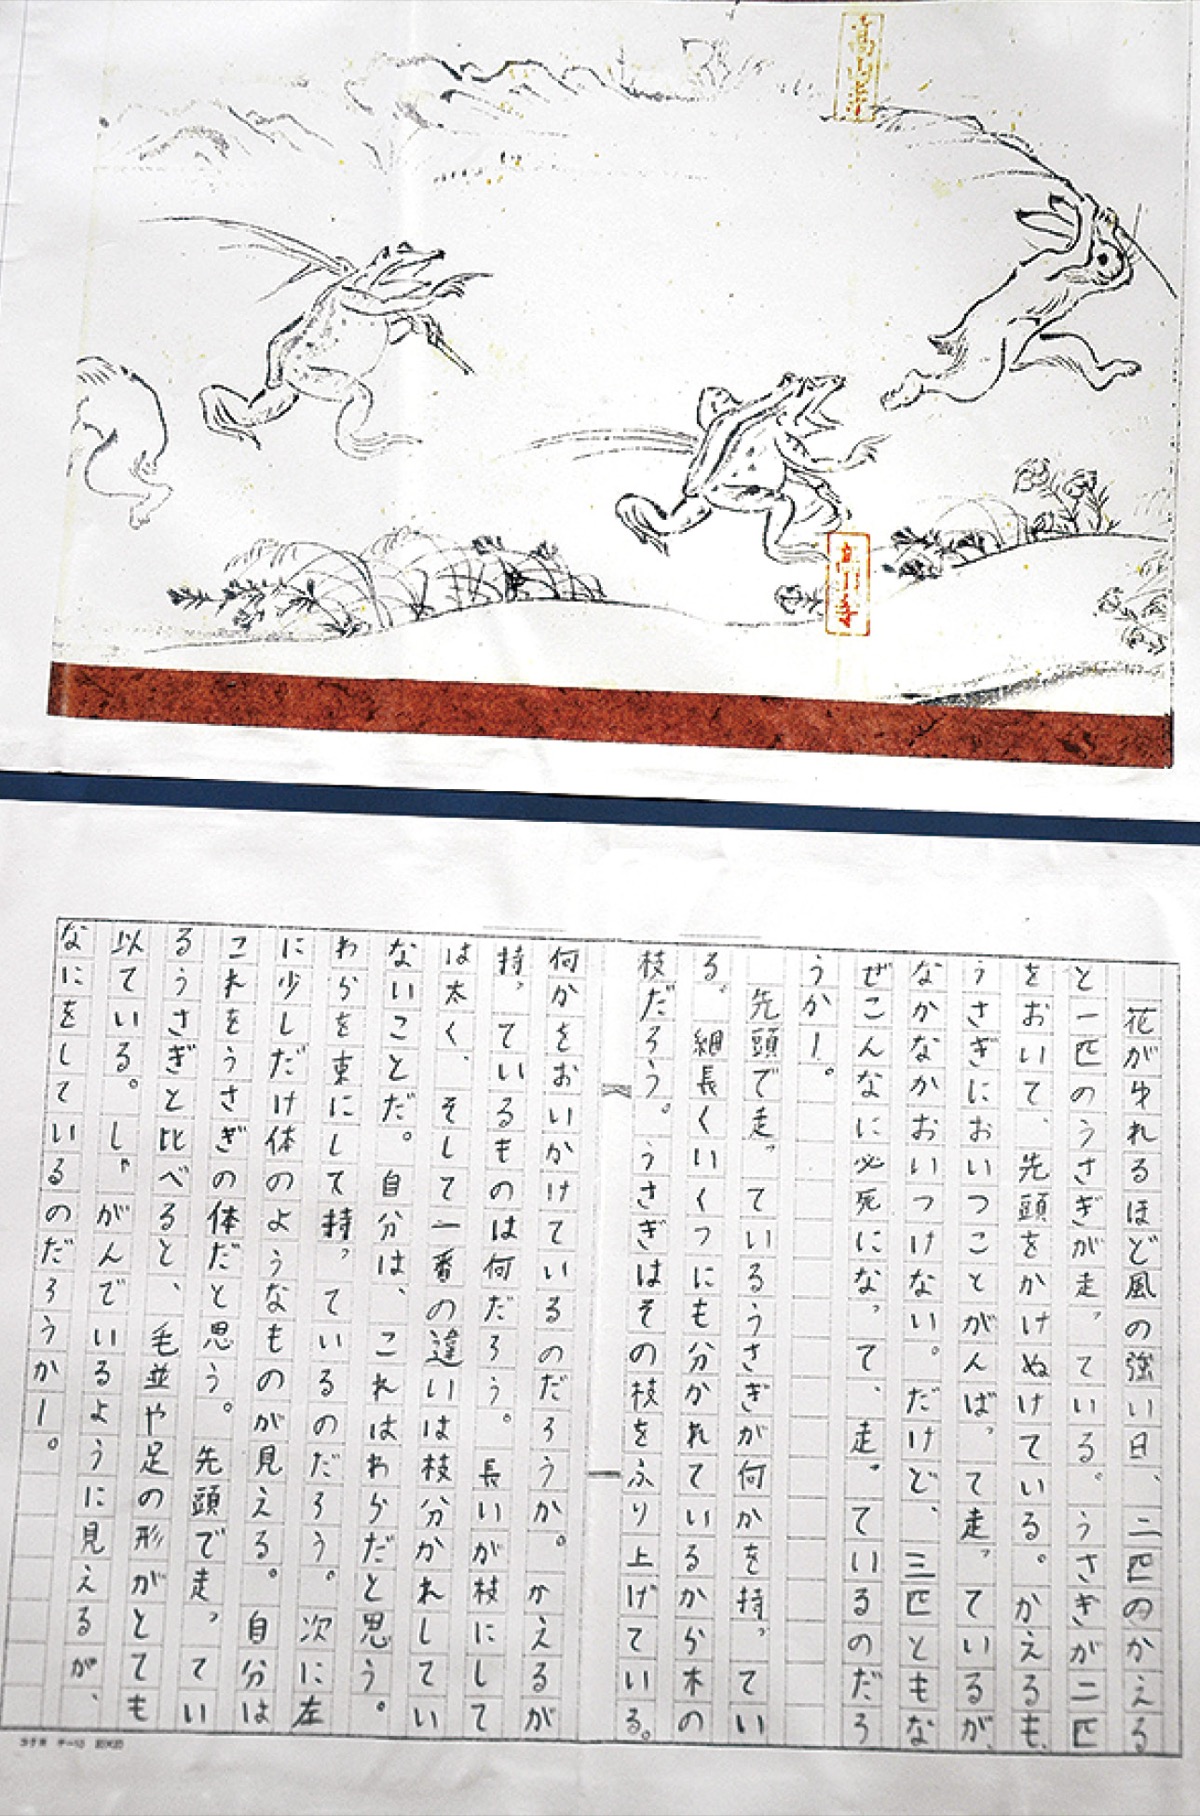 高山寺
高山寺
花がゆれるほど風の強い日、二匹のかえる
と一匹のうさぎが走っている。うさぎが二匹
をおいて、先頭をかけぬけている。かえるも、
うさぎにおいつことがんばって走っているが、
なかなかおいつけない。だけど、三匹ともな
ぜこんなに必死になって、走っているのだろ
うかー。
先頭で走っているうさぎが何かを持ってい
る。細長くいくつにも分かれているから木の
枝だろう。うさぎはその枝をふり上げている。
何かをおいかけているのだろうか。かえるが
持っているものは何だろう。長いが枝にして
は太く、そして一番の違いは枝分かれしてい
ないことだ。自分は、これはわらだと思う。
わらを束にして持っているのだろう。次に左
に少しだけ体のようなものが見える。自分は
これをうさぎの体だと思う。先頭で走ってい
るうさぎと比べると、毛並や足の形がとても
以ている。しゃがんでいるように見えるが、
なにをしているのだろうかー。